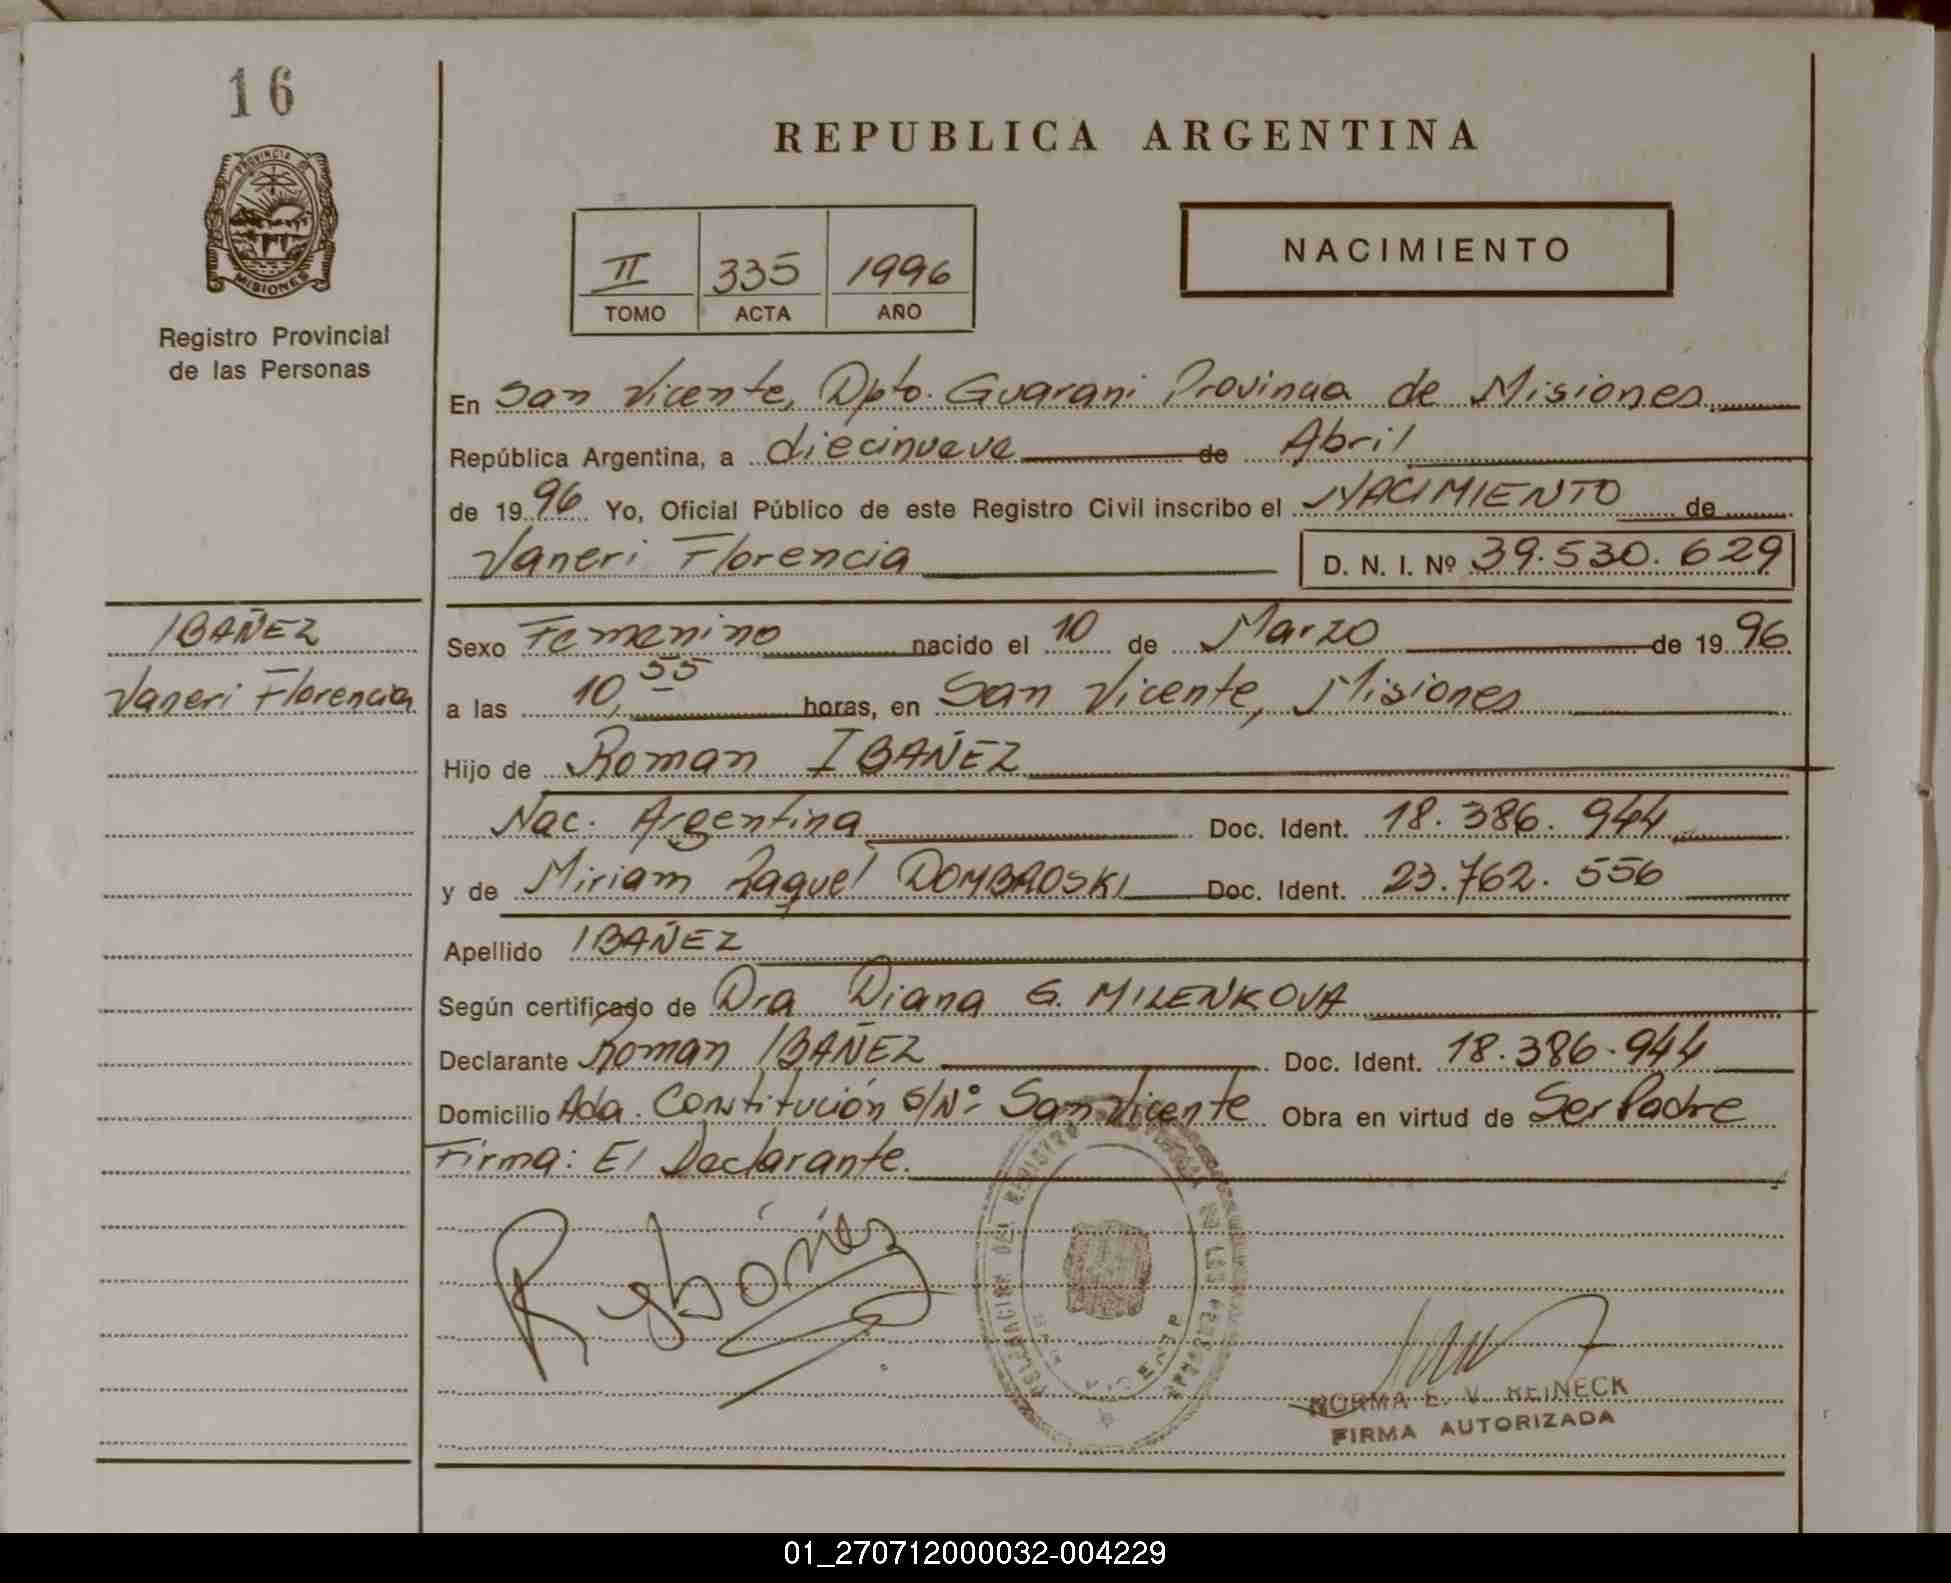 16
PROVINCIA DE
MISIONES
Registro Provincial
de las Personas
REPUBLICA ARGENTINA
II 335 1996
TOMO ACTA AÑO
NACIMIENTO
En San Vicente, Dpto. Guarani Provincia de Misiones
República Argentina, a diecinueve de Abril
de 1996 Yo, Oficial Público de este Registro Civil inscribo el NACIMIENTO de
Vaneri Florencia D. N. I. Nº 39.530.629
IBAÑEZ
Vaneri Florencia
Sexo Femenino nacido el 10 de Marzo de 1996
a las 10,55 horas, en San Vicente, Misiones
Hijo de Roman IBAÑEZ
Nac. Argentina Doc. Ident. 18.386.944
y de Miriam Raquel DOMBROSKI Doc. Ident. 23.762.556
Apellido IBAÑEZ
Según certificado de Dra Diana G. MILENKOVA
Declarante Roman IBAÑEZ Doc. Ident. 18.386.944
Domicilio Ada. Constitución S/Nº San Vicente Obra en virtud de Ser Padre
Firma: El Declarante.
DELEGACION DEL REGISTRO PROVINCIAL DE LAS PERSONAS
NORMA E. V. REINECK
FIRMA AUTORIZADA
01_270712000032-004229